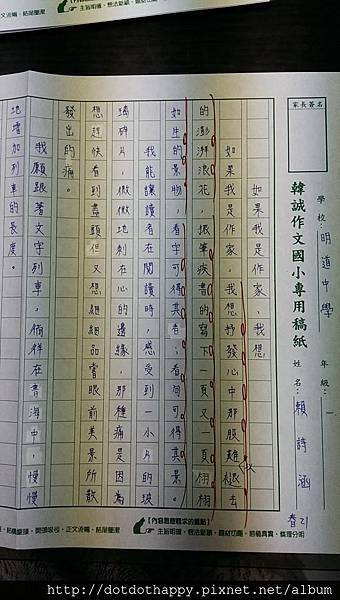 家長簽名
韓誠作文國小專用稿紙
學校:明道中學 年級:一 姓名:賴詩涵
春21
如果我是作家,我想
如果我是作家,我想抒發心中那股難褪去
的澎湃浪花,振筆疾書的寫下一頁又一頁栩栩
如生的景物,看字可得其看;看句可得其景。
我的能讓讀者在閱讀時,感受到一小片的玻
璃碎片,微微刺在心的邊緣,那種痛是因為
想趕快看到盡頭但又想細細品嘗眼前美景所散
發出的痛。
我願跟著文字列車,徜徉在書海中,慢慢
地增加列車的長度。
正文流暢、結尾簡潔
主旨明確、想法新穎、題材切題、感情真實、條理分明
http://dotdothappy.pixnet.net/album